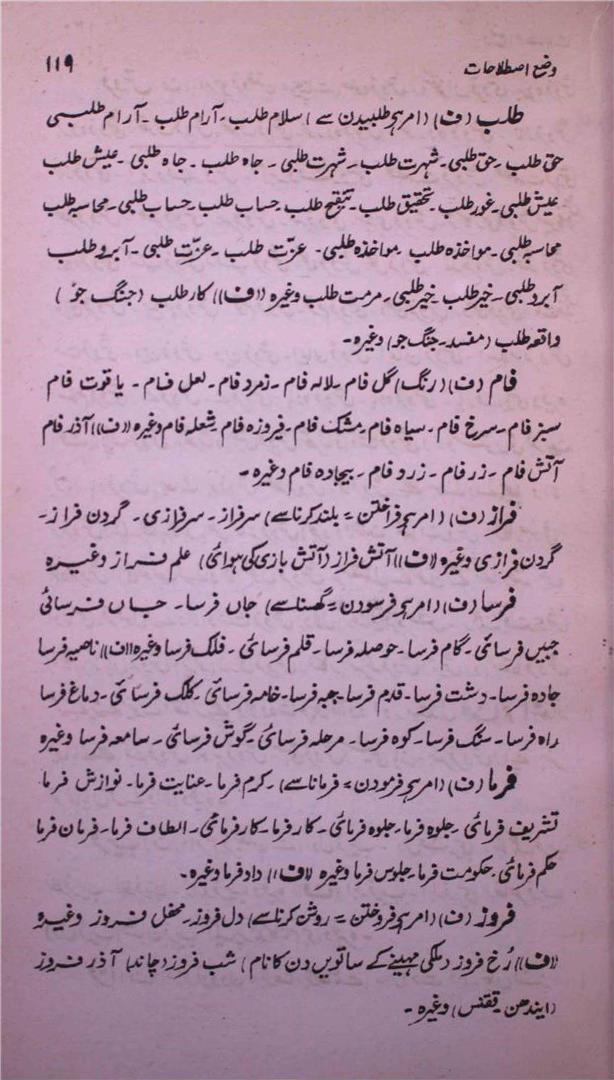 وضع اصطلاحات ۱۱۹
طلب (ف) (امر ہے طلبیدن سے) سلام طلب۔ آرام طلب۔ آرام طلبی
حق طلب۔ حق طلبی۔ شہرت طلب۔ شہرت طلبی۔ جاہ طلب۔ جاہ طلبی۔ عیش طلب
عیش طلبی۔ غور طلب۔ تحقیق طلب۔ تنقیح طلب۔ حساب طلب۔ حساب طلبی۔ محاسبہ طلب
محاسبہ طلبی۔ مواخذہ طلب۔ مواخذہ طلبی۔ عزّت طلب۔ عزّت طلبی۔ آبرو طلب
آبرو طلبی۔ خیر طلب۔ خیر طلبی۔ مرمت طلب وغیرہ ((ف)) کار طلب (جنگ جو)
واقعہ طلب (مفسد۔ جنگ جو) وغیرہ۔
فام (ف) (رنگ) گل فام۔ لالہ فام۔ زمرد فام۔ لعل فام۔ یاقوت فام
سبز فام۔ سرخ فام۔ سیاہ فام۔ مشک فام۔ فیروزہ فام۔ شعلہ فام وغیرہ ((ف)) آذر فام
آتش فام۔ زر فام۔ زرد فام۔ بیجادہ فام وغیرہ۔
فراز (ف) (امر ہے فراختن = بلند کرنا سے) سرفراز۔ سرفرازی۔ گردن فراز۔
گردن فرازی وغیرہ ((ف)) آتش فراز (آتش بازی کی ہوائی) علم فراز وغیرہ
فرسا (ف) (امر ہے فرسودن = گھسنا سے) جاں فرسا۔ جاں فرسائی
جبیں فرسائی۔ گام فرسا۔ حوصلہ فرسا۔ قلم فرسائی۔ فلک فرسا وغیرہ ((ف)) ناصیہ فرسا
جادہ فرسا۔ دشت فرسا۔ قدم فرسا۔ جبہ فرسا۔ خامہ فرسائی۔ کلک فرسائی۔ دماغ فرسا
راہ فرسا۔ سنگ فرسا۔ کوہ فرسا۔ مرحلہ فرسائی۔ گوش فرسائی۔ سامعہ فرسا وغیرہ
فرما (ف) (امر ہے فرمودن = فرمانا سے) کرم فرما۔ عنایت فرما۔ نوازش فرما
تشریف فرمائی۔ جلوہ فرما۔ جلوہ فرمائی۔ کار فرما۔ کار فرمائی۔ الطاف فرما۔ فرمان فرما
حکم فرمائی۔ حکومت فرما۔ جلوس فرما وغیرہ ((ف)) داد فرما وغیرہ۔
فروز (ف) (امر ہے فروختن = روشن کرنا سے) دل فروز۔ محفل فروز وغیرہ
((ف)) رُخ فروز (ملکی مہینے کے ساتویں دن کا نام) شب فروز (چاند) آذر فروز
(ایندھن۔ ققنس) وغیرہ۔